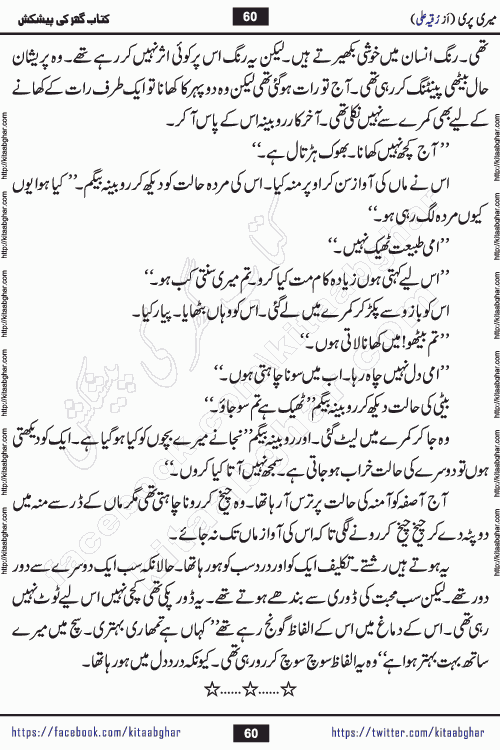 میری پری (از رقیہ علی)
60
کتاب گھر کی پیشکش
تھی۔ رنگ انسان میں خوشی بکھیرتے ہیں۔ لیکن یہ رنگ اس پر کوئی اثر نہیں کر رہے تھے۔ وہ پریشان
حال بیٹھی پینٹنگ کر رہی تھی۔ آج تو رات ہو گئی تھی لیکن وہ دوپہر کا کھانا تو ایک طرف رات کے کھانے
کے لیے بھی کمرے سے نہیں نکلی تھی۔ آخر کار روبینہ اس کے پاس آ کر۔
’’آج کچھ نہیں کھانا۔ بھوک ہڑتال ہے۔‘‘
اس نے ماں کی آواز سن کر اوپر منہ کیا۔ اس کی مردہ حالت کو دیکھ کر روبینہ بیگم۔’’ کیا ہوا یوں
کیوں مردہ لگ رہی ہو۔‘‘
’’امی طبیعت ٹھیک نہیں۔‘‘
’’اس لیے کہتی ہوں زیادہ کام مت کیا کرو۔ تم میری سنتی کب ہو۔‘‘
اس کو بازو سے پکڑ کر کمرے میں لے گئی۔ اس کو وہاں بٹھایا۔ پیار کیا۔
’’تم بیٹھو! میں کھانا لاتی ہوں۔‘‘
’’امی دل نہیں چاہ رہا۔ اب میں سونا چاہتی ہوں۔‘‘
بیٹی کی حالت دیکھ کر روبینہ بیگم’’ ٹھیک ہے تم سو جاؤ۔‘‘
وہ جا کر کمرے میں لیٹ گئی۔ اور روبینہ بیگم’’ نجانے میرے بچوں کو کیا ہو گیا ہے۔ ایک کو دیکھتی
ہوں تو دوسرے کی حالت خراب ہو جاتی ہے۔ سمجھ نہیں آتا کیا کروں۔‘‘
آج آصفہ کو آمنہ کی حالت پر ترس آ رہا تھا۔ وہ چیخ کر رونا چاہتی تھی مگر ماں کے ڈر سے منہ میں
دوپٹہ دے کر چیخ چیخ کر رونے لگی تا کہ اس کی آواز ماں تک نہ جائے۔
یہ ہوتے ہیں رشتے۔ تکلیف ایک کو اور درد سب کو ہو رہا تھا۔ حالانکہ سب ایک دوسرے سے دور
دور تھے۔ لیکن سب محبت کی ڈوری سے بندھے ہوئے تھے۔ یہ ڈور پکی تھی کچی نہیں اس لیے ٹوٹ نہیں
رہی تھی۔ اس کے دماغ میں اس کے الفاظ گونج رہے تھے’’ کہاں ہے تمھاری بہتری۔ سچ میں میرے
ساتھ بہت بہتر ہوا ہے‘‘ وہ یہ الفاظ سوچ سوچ کر رو رہی تھی۔ کیونکہ درد دل میں ہو رہا تھا۔
☆......☆......☆
https://facebook.com/kitaabghar
60
https://twitter.com/kitaabghar
http://kitaabghar.com